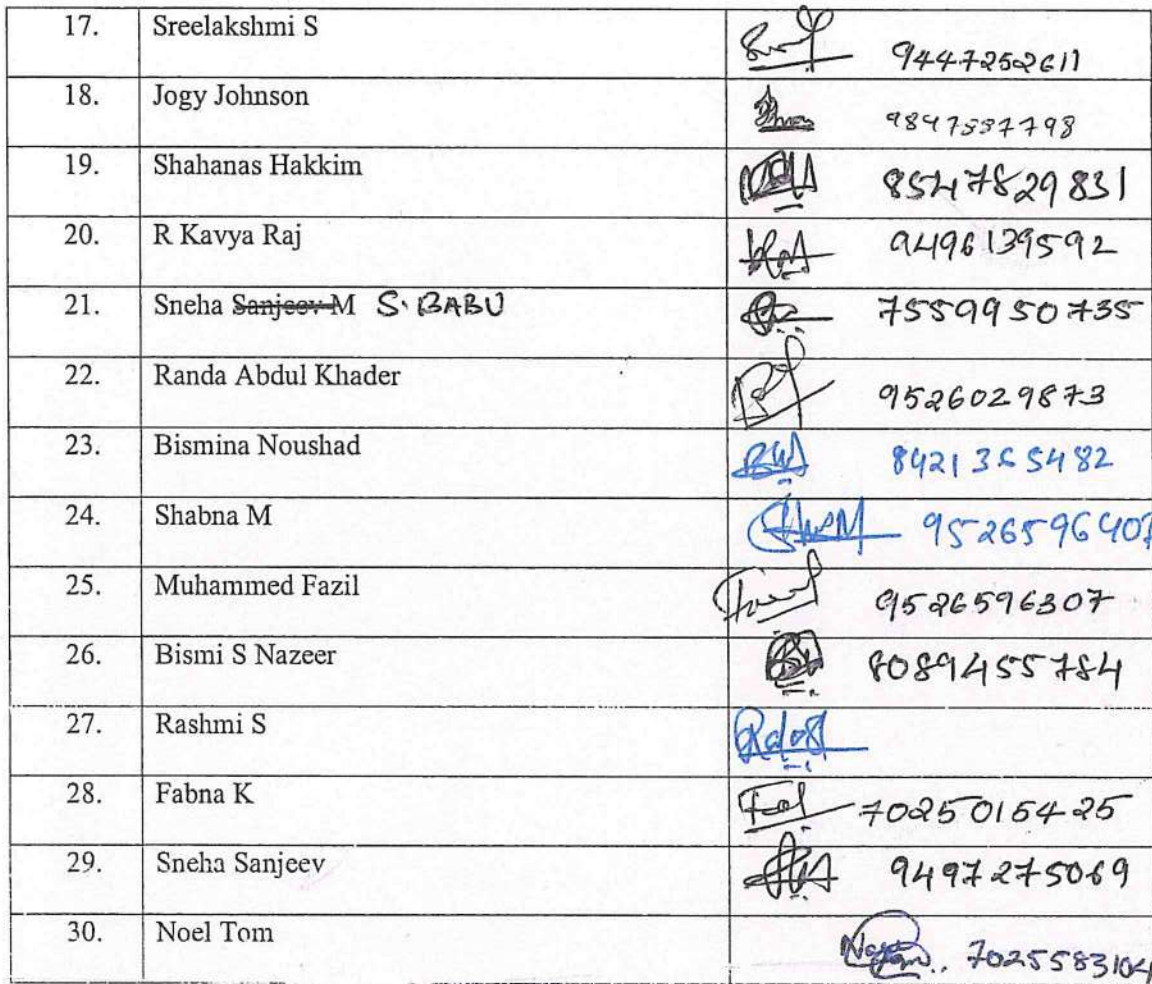 17. Sreelakshmi S 9447252611
18. Jogy Johnson
19. Shahanas Hakkim 8547829831
20. R Kavya Raj 9496139592
21. Sneha Sanjeev M S. BABU 7559950735
22. Randa Abdul Khader 9526029873
23. Bismina Noushad
24. Shabna M 9526596407
25. Muhammed Fazil 9526596307
26. Bismi S Nazeer 8089455784
27. Rashmi S
28. Fabna K 7025015425
29. Sneha Sanjeev 9497275069
30. Noel Tom 7025583104